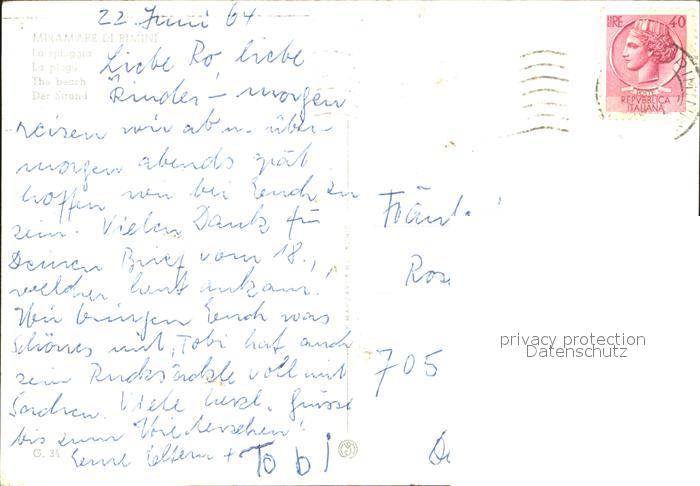 22. Juni 64
MIRAMARE DI RIMINI
La spiaggia
La plage
The beach
Der Strand
Liebe Ro, liebe
Kinder – morgen
reisen wir ab u. über-
morgen abends spät
hoffen wir bei Euch zu
sein. Vielen Dank für
Deinen Brief vom 18.,
welcher heut ankam!
Wir bringen Euch was
Schönes mit, Tobi hat auch
sein Rucksäckle voll mit
Sachen. Viele herzl. Grüsse
bis zum Wiedersehen!
Eure Eltern + Tobi
G. 34
LIRE 40
REPVBBLICA
ITALIANA
Fräul.
Ros
705
privacy protection
Datenschutz